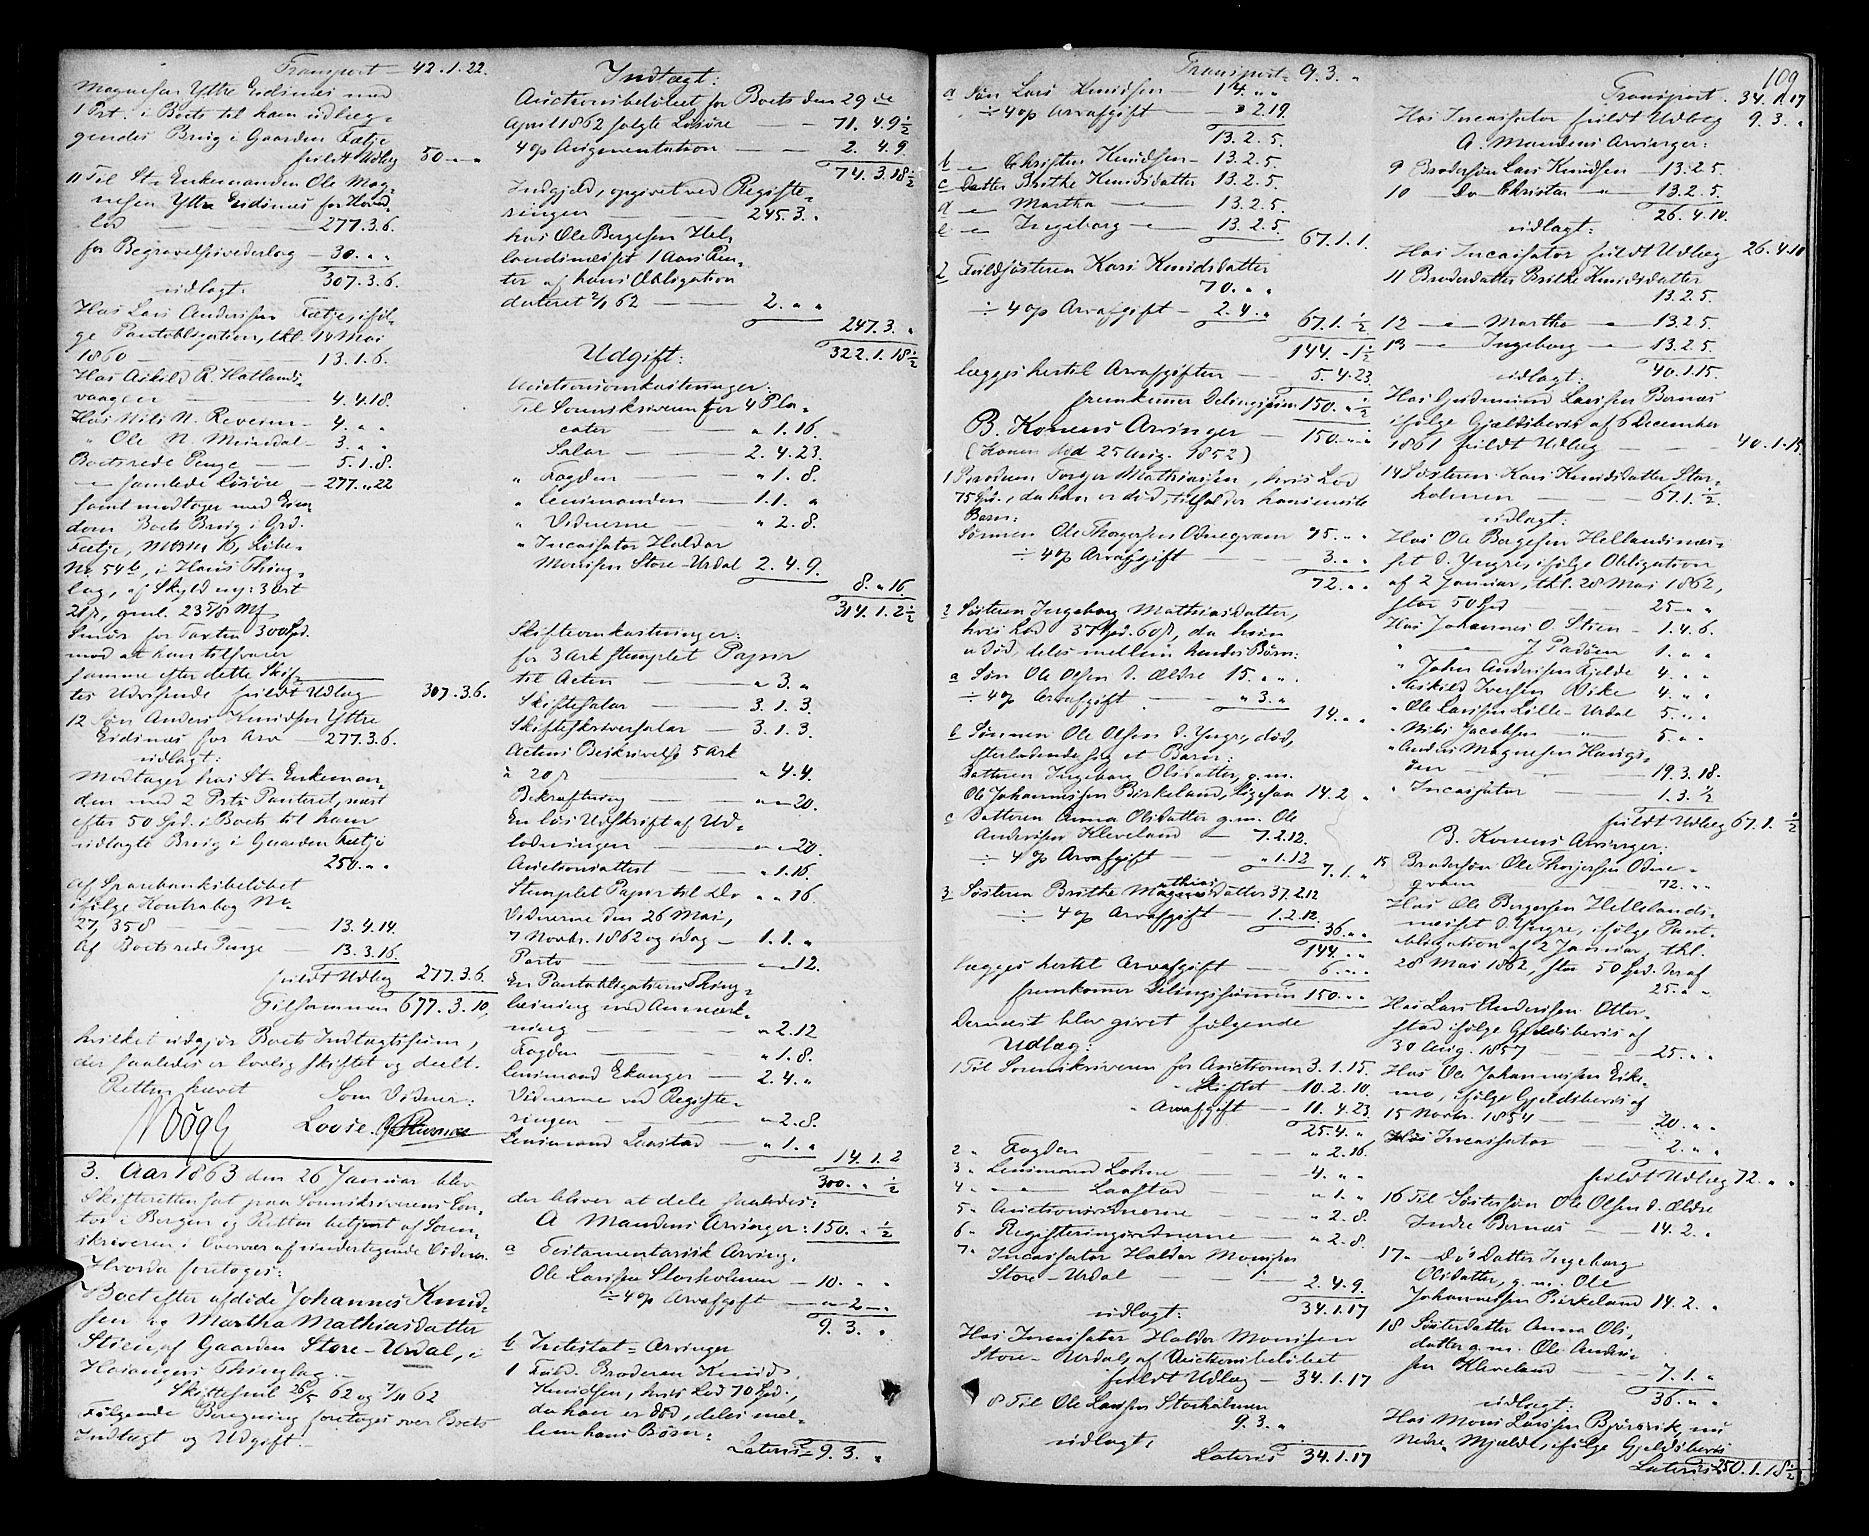 Transport — 42.1.22.
Magnesen Yttre Eidsnes med
1 Prt. i Boets til ham udlæg-
gendes Brug i Gaarden Fætje
fuldt Udlæg 50 " "
11 Til St. Enkemanden Ole Mag-
nesen Yttre Eidsnes for Hoved-
lod — 277.3.6.
for Begravelsesvederlag — 30 " "
307.3.6.
udlagt:
Hos Lars Andersen Fætje, iføl-
ge Pantobligation, thl. 14 Mai
1860 — 13.1.6.
Hos Askild R. Hatlands-
vaagen — 4.4.18.
Hos Nils N. Reveim — 4 " "
" Ole N. Meindal — 3 " "
Boets rede Penge — 5.1.8.
— samlede Løsøre — 277 " 22
samt modtager med Eien-
dom Boets Brug i Grd.
Fætje, Mtr No 16, Løbe-
No 54b, i Hans Thing-
lag, af Skyld ny: 3 Ort
21 s, gml. 23 5/8 Mk
Smør for Taxten 300 Spd.
mod at han tilsvarer
samme efter dette Skif-
tes Udvisende fuldt Udlæg 307.3.6.
12 Søn Anders Knudsen Yttre
Eidsnes for Arv — 277.3.6.
udlagt:
Modtager hos St. Enkeman-
den med 2 Prts Panteret, næst
efter 50 Spd. i Boets til ham
udlagte Brug i Gaarden Fætje
250 " "
Af Sparebanksbeløbet
ifølge Kontrabog No
27,358 — 13.4.14.
Af Boets rede Penge — 13.3.16.
fuldt Udlæg 277.3.6.
Tilsammen 677.3.10,
hvilket udgjør Boets Indtægtssum,
der saaledes er lovlig skiftet og deelt.
Retten hævet Som Vidner:
Bøgh Lovise.
3. Aar 1863 den 26 Januar blev
Skifteretten sat paa Sorenskriverens Con-
tor i Bergen og Retten betjent af Soren-
skriveren, i Overvær af undertegnede Vidner.
Hvorda foretoges:
Boet efter afdøde Johannes Knud-
sen og Martha Mathiasdatter
Stien af Gaarden Store-Urdal, i
Hosangers Thinglag.
Skiftesuil 26/5 62 og 7/11 62
Følgende Beregning foretoges over Boets
Indtægt og Udgift.
Indtægt:
Auctionsbeløbet for Boets den 29de
April 1862 solgte Løsøre — 71.4.9½
4 op Augmentation — 2.4.9.
74.3.18½
Indgjæld, opgivet ved Registe-
ringen — 245.3 "
hos Ole Børgesen Hel-
landsnæset 1 Aars Ren-
ter af hans Obligation
dateret 2/1 62 — 2 " "
247.3 "
322.1.18½
Udgift:
Auctionsomkostninger:
Til Sorenskriveren for 4 Pla-
cater — " 1.16.
Salar — 2.4.23.
" Fogden — " 1.8.
" Lensmanden — 1.1 "
" Vidnerne — " 2.8.
" Incassator Haldor
Monsen Store-Urdal 2.4.9.
8 " 16
314.1.2½
Skifteomkostninger:
for 3 Ark stemplet Papir
til Acten — " 3 "
Skiftesalar — 3.1.3.
Skifteskriversalar — 3.1.3.
Actens Beskrivelse 5 Ark
à 20 s — " 4.4.
Bekræftning — " " 20.
En løs Udskrift af Ud-
lodningen — " " 20.
Auctionsattest — " 1.16.
Stemplet Papir til Do " " 16
Vidnerne den 26 Mai,
7 Novbr. 1862 og idag — 1.1 "
Porto — " " 12.
En Pantobligations Thing-
læsning med Anmærk-
ning — " 2.12
Fogden — " 1.8.
Lensmand Ekanger — 2.4 "
Vidnerne ved Registe-
ringen — " 2.8.
Lensmand Laastad — " 1 "
14.1.2
300 " ½
der bliver at dele saaledes:
A Mandens Arvinger: 150 " ½
a Testamentarisk Arving.
Ole Larssen Storholmen — 10 " "
÷ 4 op Arvafgift — " 2 "
9.3 "
b Intestat-Arvinger
1 Fuld. Broderen Knud
Knudsen, hvis Lod 70 Spd.,
da han er død, deles mel-
lem hans Børn:
Lateris 9.3 "
Transport 9.3 "
a Søn Lars Knudsen — 14 " "
÷ 4 op Arvafgift " 2.19.
13.2.5.
b — Christen Knudsen — 13.2.5.
c Datter Brithe Knudsdatter 13.2.5.
d — Martha — 13.2.5.
e — Ingeborg — 13.2.5.
67.1.1.
2 Fuldsøsteren Kari Knudsdatter
70 " "
÷ 4 op Arvafgift — 2.4 "
67.1.½
144 " 1½
lægges hertil Arvafgiften — 5.4.23.
fremkommer Delingssum 150 " ½
B. Konens Arvinger — 150 " "
(Konen død 25 Aug. 1852)
1 Broderen Torger Mathiassen, hvis Lod
75 Spd., da han er død, tilfalder hans eneste
Barn:
Sønnen Ole Thorgersen Odnegram 75 " "
÷ 4 op Arvafgift — 3 " "
72 " "
2 Søsteren Ingeborg Mathiasdatter,
hvis Lod 37 Spd. 60 s, da hun
er død, deles mellem hendes Børn:
a Søn Ole Olsen d. Ældre 15 " "
÷ 4 op Arvafgift " 3 "
14 " "
b Sønnen Ole Olsen d. Yngre, død,
efterladende sig et Barn:
Datteren Ingeborg Olsdatter, g.m.
Ole Johannessen Birkeland, ligesaa 14.2 "
c Datteren Anna Olsdatter g.m. Ole
Andersen Kleveland — 7.2.12.
÷ 4 op Arvafgift — " 1.12
7.1 "
3 Søsteren Brithe Mathiasdatter 37.2.12
÷ 4 op Arvafgift — 1.2.12.
36 " "
144 " "
lægges hertil Arvafgift — 6 " "
fremkommer Delingssummen 150 " "
Dernæst blev givet følgende
Udlæg:
1 Til Sorenskriveren for Auctionen 3.1.15.
" Skiftet — 10.2.10.
" Arvafgift — 11.4.23.
25.4 "
2 " Fogden — " 2.16.
3 " Lensmand Lohne — 4 " "
4 " — Laastad — " 1 "
5 " Auctionsvidnerne — " 2.8.
6 " Registeringsvidnerne — " 2.8.
7 " Incassator Haldor Monsen
Store-Urdal — 2.4.9.
34.1.17
udlagt:
Hos Incassator Haldor Monsen
Store-Urdal, af Auctionsbeløbet
fuldt Udlæg — 34.1.17
8 Til Ole Larssen Storholmen
9.3 "
udlagt:
Lateris 34.1.17
109
Transport. 34.1.17
Hos Incassator fuldt Udlæg 9.3 "
A. Mandens Arvinger:
9 Brodersøn Lars Knudsen — 13.2.5.
10 Do Christen — 13.2.5.
26.4.10.
udlagt:
Hos Incassator fuldt Udlæg 26.4.10
11 Broderdatter Brithe Knudsdatter
13.2.5.
12 — Martha — 13.2.5.
13 — Ingeborg — 13.2.5.
40.1.15.
udlagt:
Hos Gudmund Larssen Bernæs
ifølge Gjeldsbevis af 6 December
1861 fuldt Udlæg — 40.1.15
14 Søsteren Kari Knudsdatter Stor-
holmen — 67.1.½
udlagt:
Hos Ole Børgesen Hellandsnæs-
set d. Yngre, ifølge Obligation
af 2 Januar, thl. 28 Mai 1862,
stor 50 Spd — 25 " "
Hos Johannes O. Stien — 1.4.6.
" — J Padøen 1 " "
" John Andersen Fjelde 4 " "
" Askild Iversen Vike 4 " "
" Ole Larssen Lille-Urdal 5 " "
" Nils Jacobsen " 5 " "
" Anders Magnesen Haugs-
den — 19.3.18.
" Incassator — 1.3.½
fuldt Udlæg 67.1.½
B. Konens Arvinger:
15 Brodersøn Ole Thorgersen Odne-
gram 72 " "
Hos Ole Børgesen Hellelands-
næsset d. Yngre, ifølge Pant-
obligation af 2 Januar, thl.
28 Mai 1862, stor 50 Spd. Hraf
25 " "
Hos Lars Anderssen Otter-
stad ifølge Gjeldsbevis af
30 Aug. 1857 — 25 " "
Hos Ole Johannessen Eike-
mo, ifølge Gjeldsbevis af
15 Novbr. 1854 — 20 " "
Hos Incassator — 2 " "
fuldt Udlæg 72 " "
16 Til Søstersøn Ole Olsen d. Ældre
Indre Bernæs — 14.2 "
17 " — Do Datter Ingeborg
Olsdatter, g.m. Ole
Johannessen Birkeland 14.2 "
18 Søsterdatter Anna Ols-
datter g.m. Ole Anders-
sen Kleveland — 7.1 "
36 " "
udlagt:
Hos Mons Larssen Bjørsvik, nu
Nedre Mjælde, ifølge Gjeldsbevis
Lateris 250.1.18½